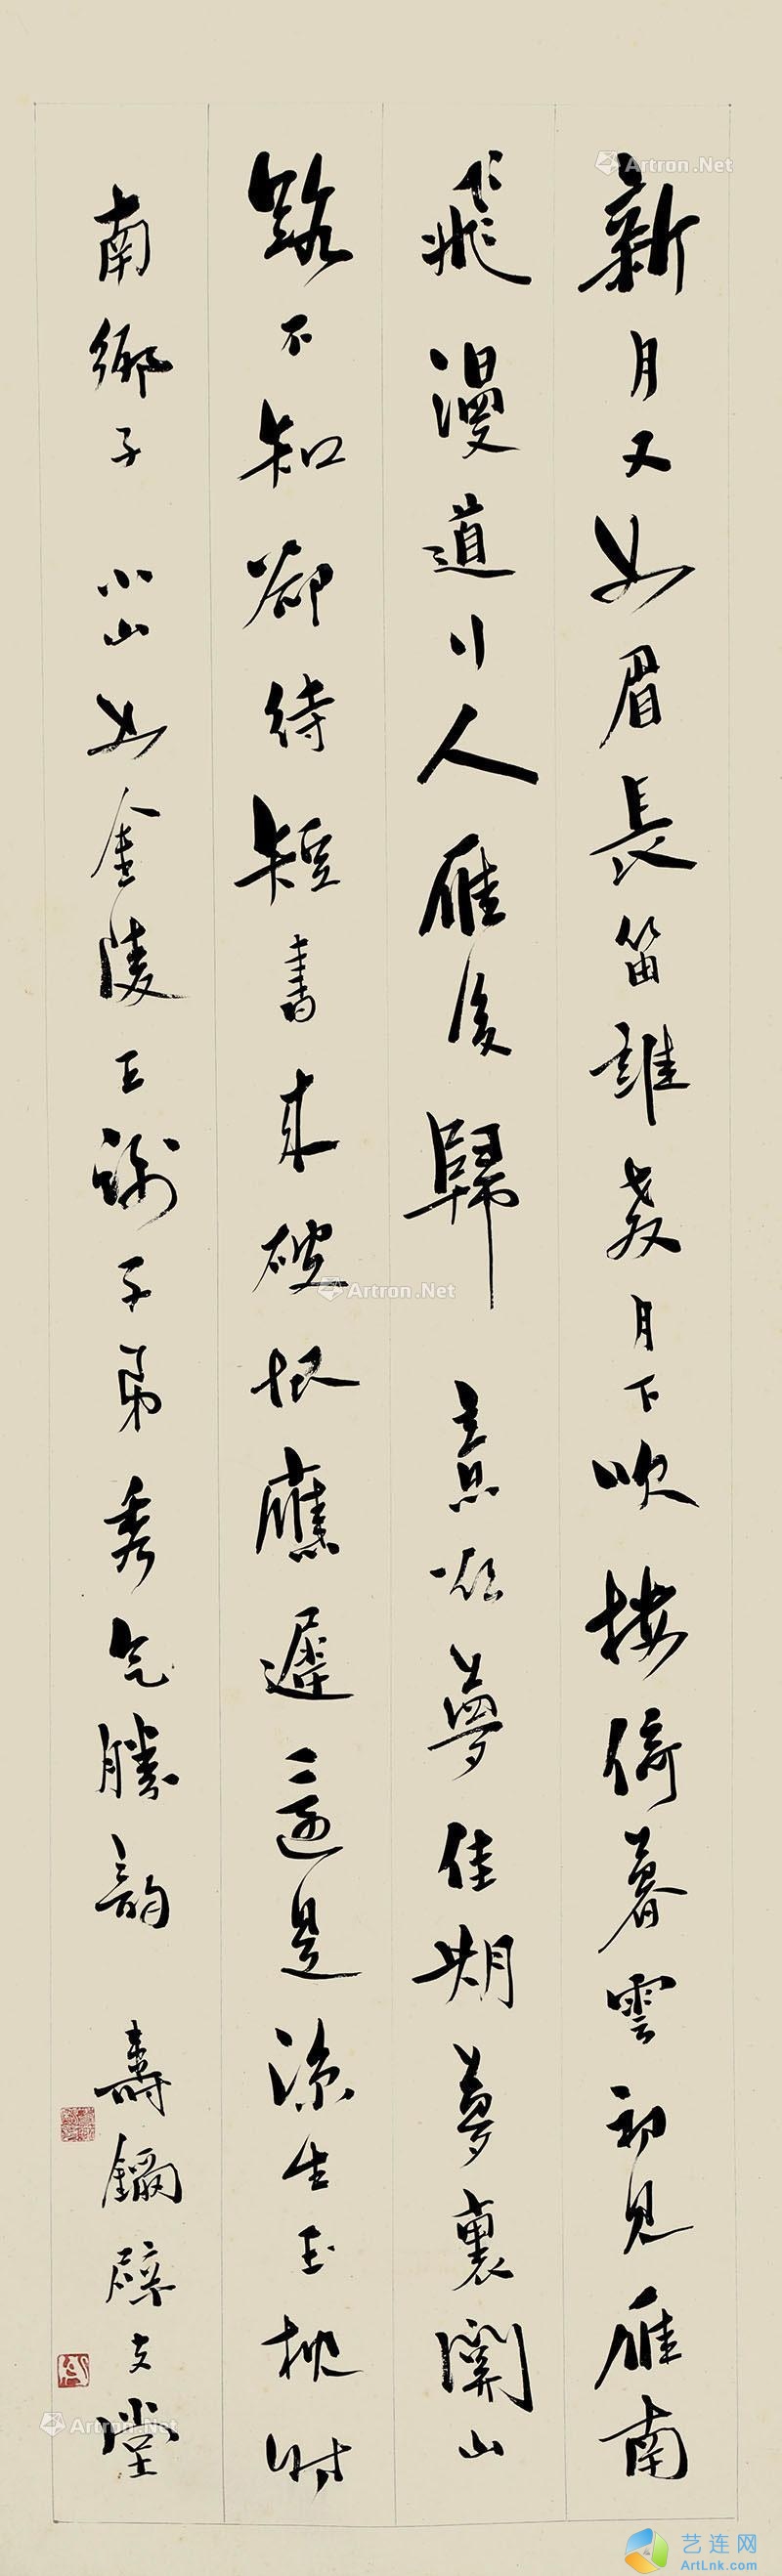 新月又如眉長笛誰教月下吹樓倚暮雲初見雁南
飛漫道行人雁後歸 意欲夢佳期夢裏關山
路不知卻待短書來破恨應遲還是涼生玉枕時
南鄉子 小山如金陵王謝子弟秀氣勝韻 壽 辟支堂
Artron.Net
Artron.Net
Artron.Net
艺连网
ArtLnk.com